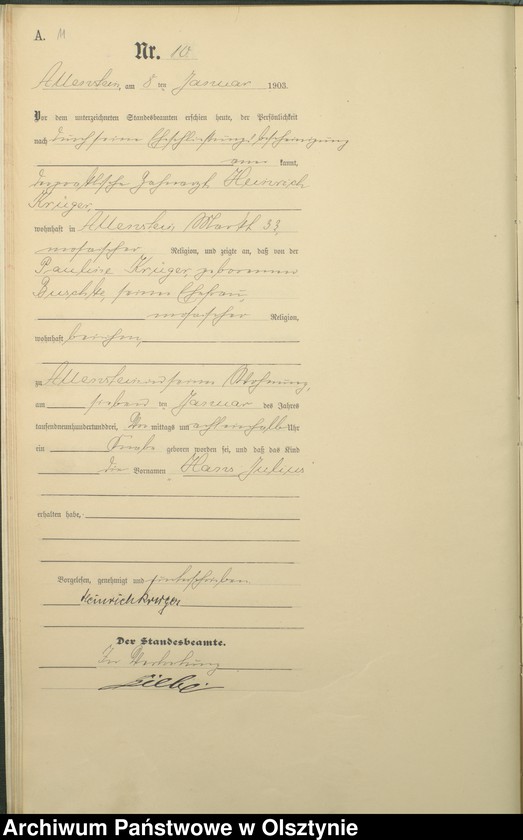 A. 11
Nr. 10
Allenstein, am 8 ten Januar 1903.
Vor dem unterzeichneten Standesbeamten erschien heute, der Persönlichkeit
nach durch seine Eheschließungsbescheinigung
aner kannt,
der praktische Zahnarzt Heinrich
Krüger,
wohnhaft in Allenstein Markt
mosaischer Religion, und zeigte an, daß von der
Pauline Krüger geborenen
seiner Ehefrau,
mosaischer Religion,
wohnhaft bei ihm,
zu Allenstein in seiner Wohnung,
am sieben ten Januar des Jahres
tausendneunhundertunddrei, Vor mittags um acht einhalb Uhr
ein Knabe geboren worden sei, und daß das Kind
die Vornamen Hans Julius
erhalten habe.
Vorgelesen, genehmigt und unterschrieben
Heinrich Krüger
Der Standesbeamte.
In Vertretung
Archiwum Państwowe w Olsztynie